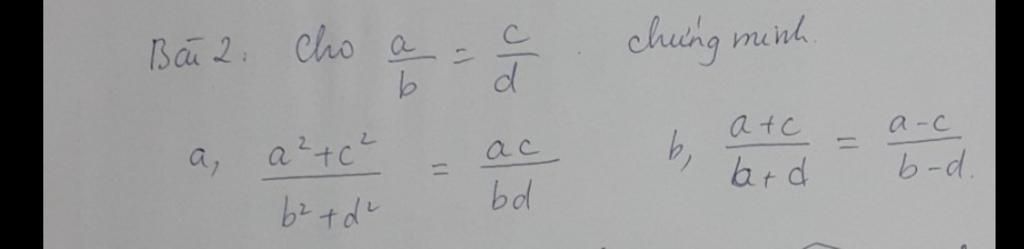 Bài 2: Cho a/b = c/d. chứng minh.
a, (a²+c²)/(b²+d²) = ac/bd b, (a+c)/(b+d) = (a-c)/(b-d).